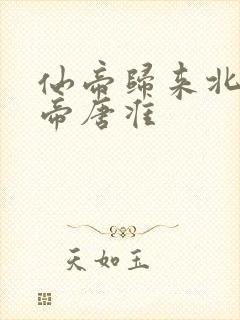 仙帝歸来北
帝唐淮
天如玉